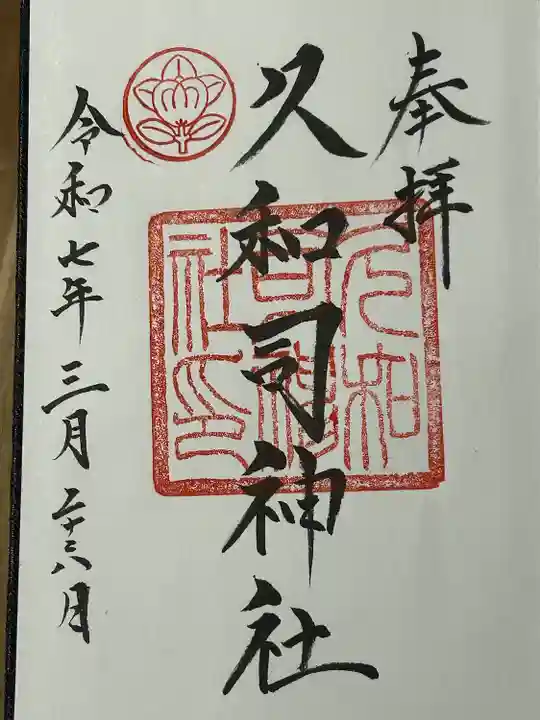 奉拝
久和司神社
久和司神社印
令和七年三月二十六日